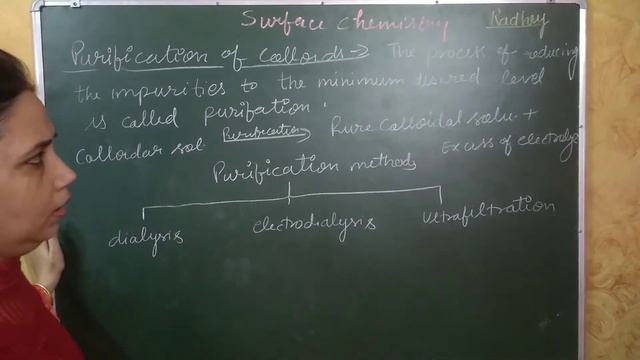 Surface chemistry Radhey
Purification of colloids → The process of reducing
the impurities to the minimum desired level
is called purifation.
Colloidar sol. Purification Pure Colloidal solu. +
Excess of electrolyte
Purification methods
dialysis electrodialysis ultrafiltration